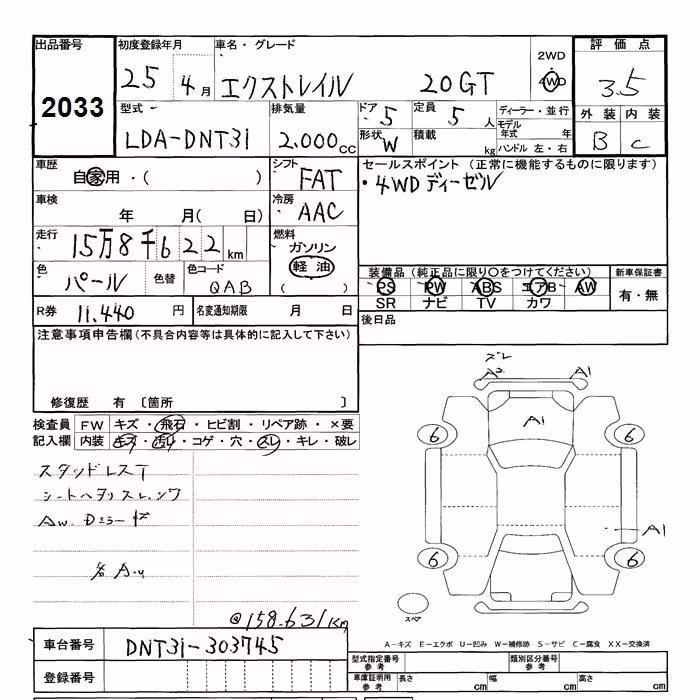 出品番号 初度登録年月 車名・グレード 2WD 評価点
2033 25 4月 エクストレイル 20GT 4WD 3.5
型式 排気量 ドア 5 定員 5人 ディーラー・並行 外装 内装
LDA-DNT31 2.000cc 形状 W 積載 kg モデル年式 年 B C
ハンドル 左・右
車歴 シフト セールスポイント (正常に機能するものに限ります)
自家用・( ) FAT ・4WD ディーゼル
車検 冷房
年 月( 日) AAC
走行 燃料
15万8千622km ガソリン
軽油
色 色替 色コード ( ) 装備品 (純正品に限り〇をつけてください) 新車保証書
パール QAB PS PW ABS エアB AW 有・無
SR ナビ TV カワ
R券 11.440円 名変通知期限 月 日 後日品
注意事項申告欄(不具合内容等は具体的に記入して下さい)
修復歴 有 〔箇所 〕
検査員 FW キズ・飛石・ヒビ割・リペア跡・×要
記入欄 内装 キズ・汚れ・コゲ・穴・スレ・キレ・破レ
スタッドレスT
シートヘタリ スレ、シワ
AW、Dミラーキズ
各A.u
@158.631Km
ズレ
A2 A1
A1
6 6
A1
6 6
スペア
A-キズ E-エクボ U-凹み W-補修跡 S-サビ C-腐食 XX-交換済
車台番号 DNT31-303745
型式指定番号 参考 類別区分番号 参考
登録番号
車庫証明用 参考 長さ cm 幅 cm 高さ cm